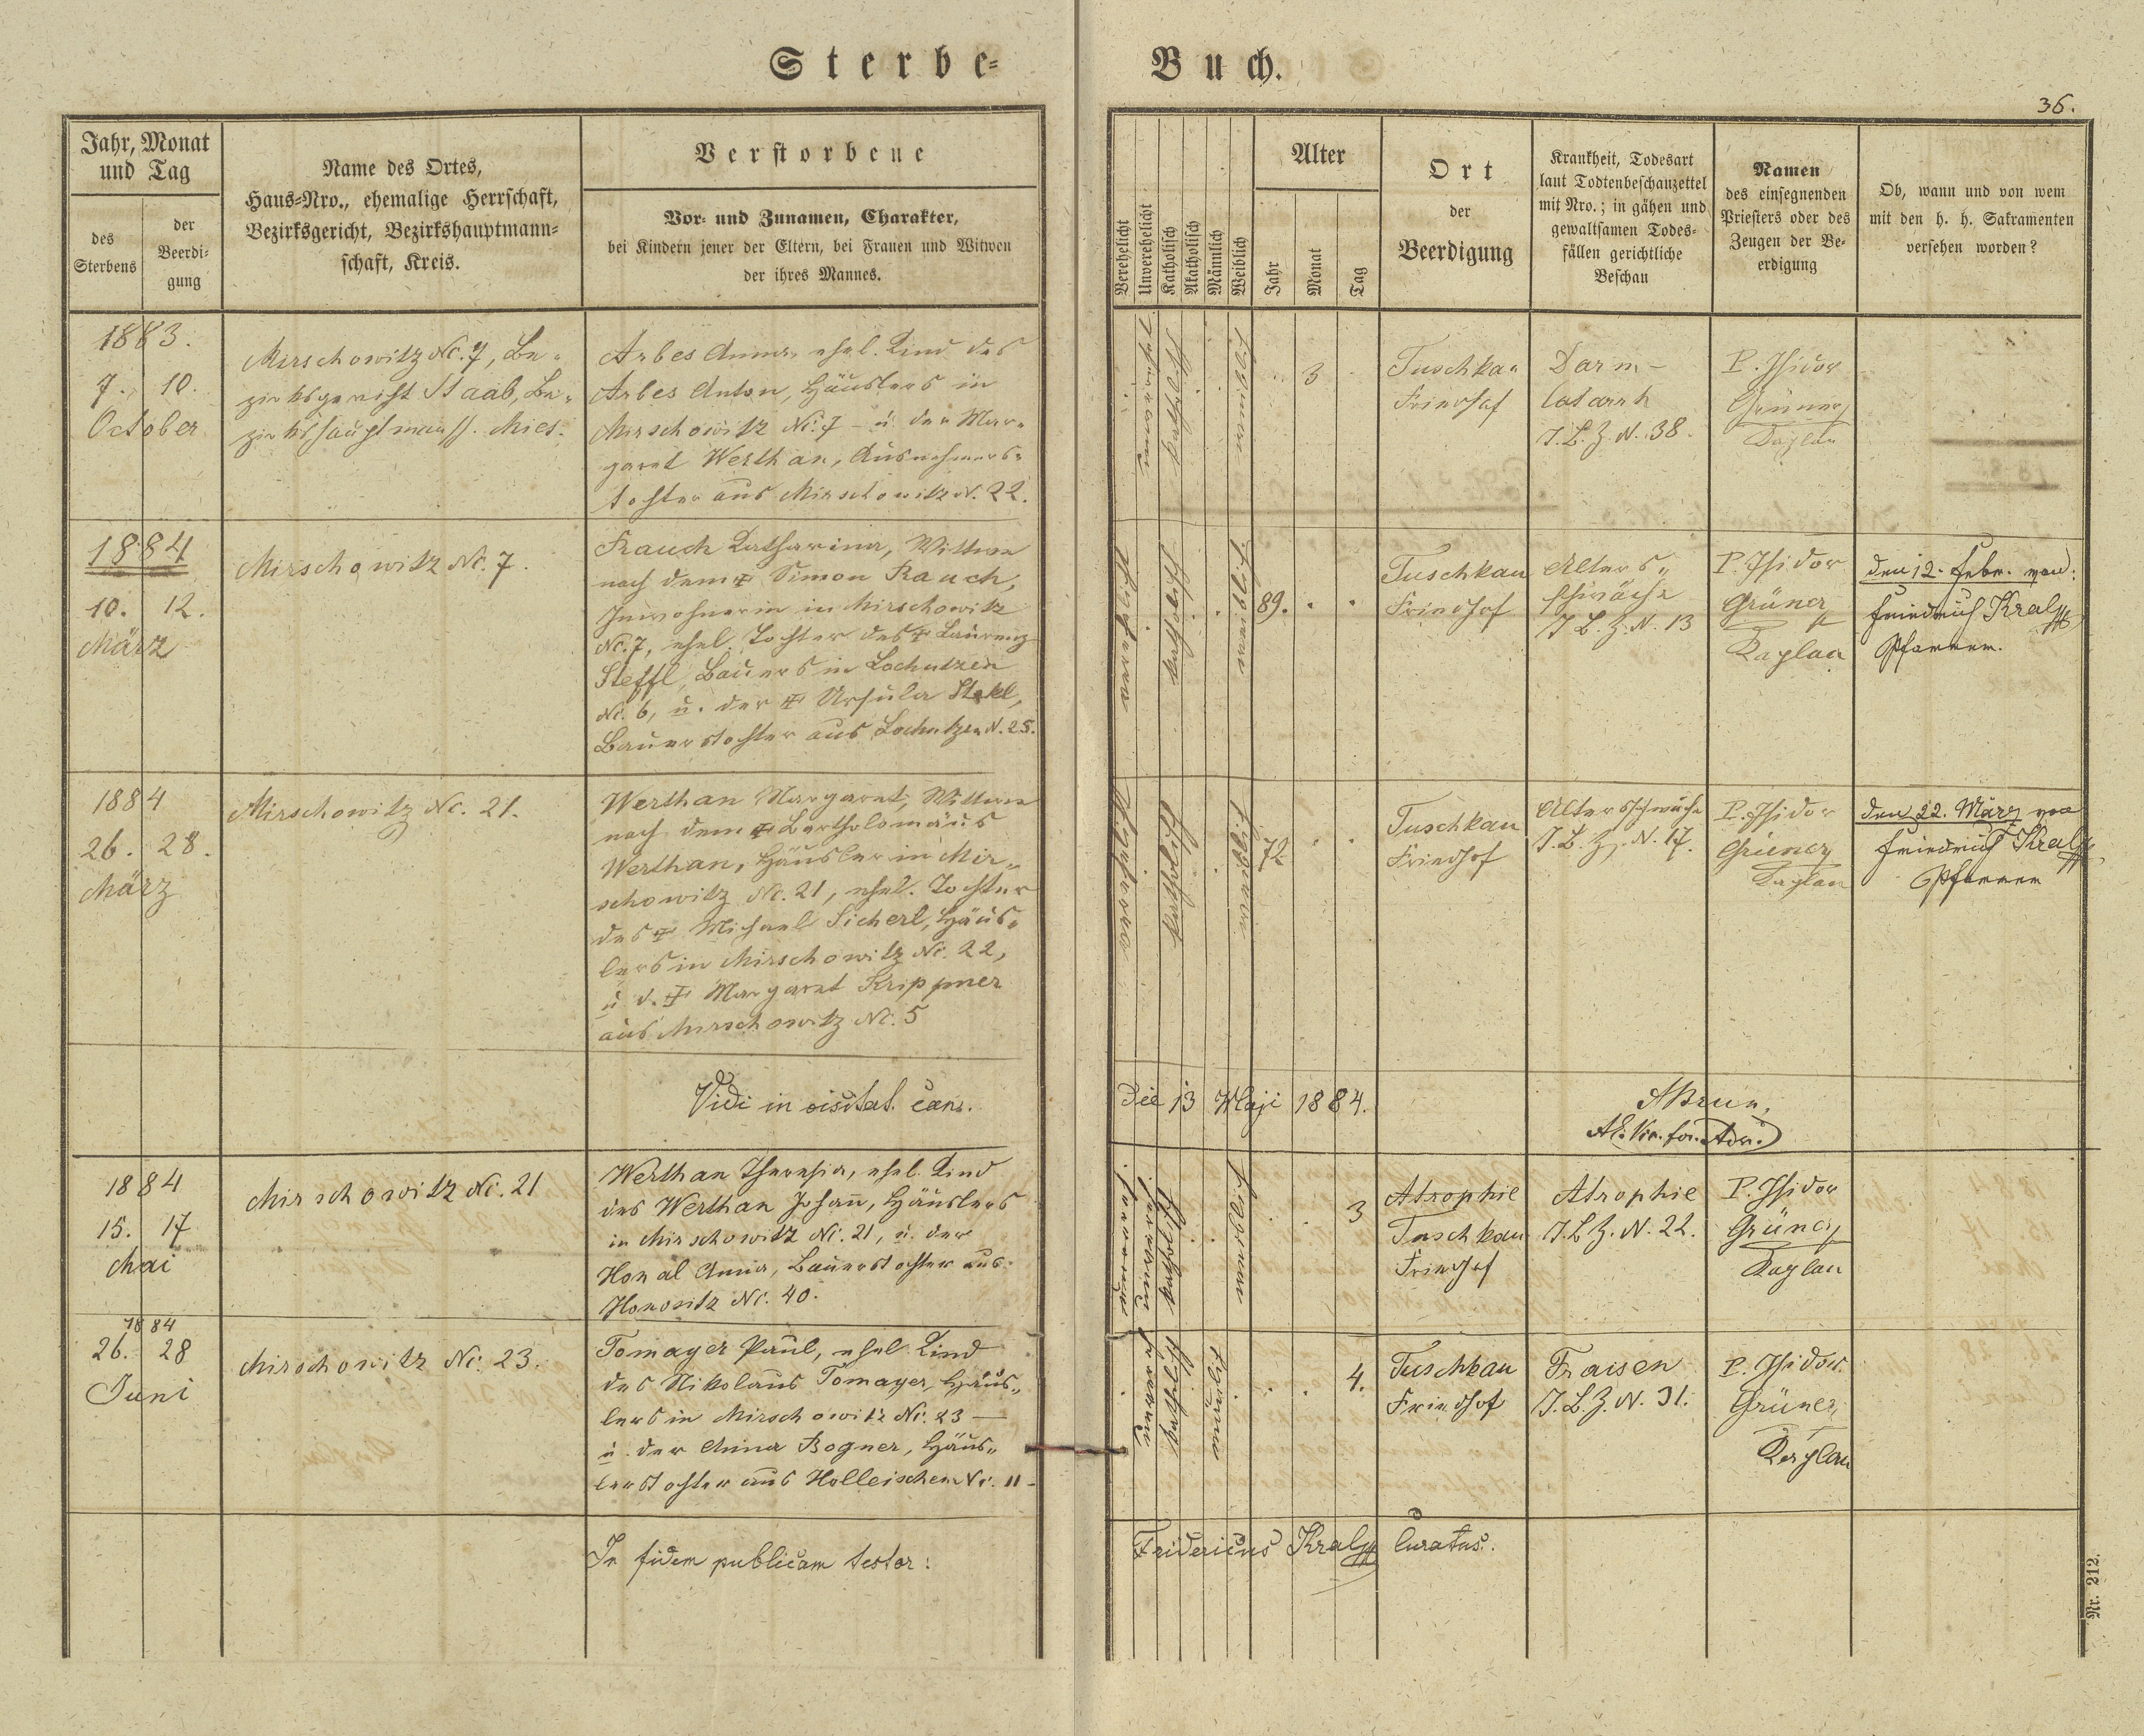 Sterbe=
Buch.
36.
Jahr, Monat
und Tag
des
Sterbens
der
Beerdi-
gung
Name des Ortes,
Haus=Nro., ehemalige Herrschaft,
Bezirksgericht, Bezirkshauptmann=
schaft, Kreis.
Verstorbene
Vor= und Zunamen, Charakter,
bei Kindern jener der Eltern, bei Frauen und Witwen
der ihres Mannes.
Verehelicht
Unverehelicht
Katholisch
Akatholisch
Männlich
Weiblich
Alter
Jahr
Monat
Tag
Ort
der
Beerdigung
Krankheit, Todesart
laut Todtenbeschauzettel
mit Nro.; in gähen und
gewaltsamen Todes=
fällen gerichtliche
Beschau
Namen
des einsegnenden
Priesters oder des
Zeugen der Be-
erdigung
Ob, wann und von wem
mit den h. h. Sakramenten
versehen worden?
1883.
7. 10.
October
Mirschowitz Nc. 7, Be-
zirksgericht Staab, Be-
zirkshauptmansch. Mies.
Arbes Anna, ehel. Kind des
Arbes Anton, Häuslers in
Mirschowitz Nc. 7 - u. der Mar-
garet Werthan, Ausnehmers-
tochter aus Mirschowitz N. 22.
katholisch
3
Tuschkau
Friedhof
Darm-
catarrh
T.B.Z.N. 38.
P. Isidor
Grüner
Kaplan
1884
10. 12.
März
Mirschowitz Nc. 7.
Rauch Katharina, Wittwe
nach dem † Simon Rauch,
Inwohnerin in Mirschowitz
Nc. 7, ehel. Tochter des † Laurenz
Steffl, Bauers in Lochutzen
Nc. 6, u. der † Ursula Stekl,
Bauerstochter aus Lochutzen N. 25.
katholisch
89.
Tuschkau
Friedhof
Alters-
schwäche
T.B.Z.N. 13
P. Isidor
Grüner
Kaplan
den 12. Febr. von
Friedrich Kraly
Pfarrer.
1884
26. 28.
März
Mirschowitz Nc. 21.
Werthan Margaret, Wittwe
nach dem † Bartholomäus
Werthan, Häusler in Mir-
schowitz Nc. 21, ehel. Tochter
des † Michael Sicherl, Häus-
lers in Mirschowitz Nc. 22,
u d. † Margaret Krippner
aus Mirschowitz Nc. 5
katholisch
72
Tuschkau
Friedhof
Altersschwäche
T.B.Z.N. 17.
P. Isidor
Grüner
Kaplan
den 22. März von
Friedrich Kraly
Pfarrer
Vidi in visitat. can.
die 13 Maji 1884.
1884
15. 17
Mai
Mirschowitz Nc. 21
Werthan Theresia, ehel. Kind
des Werthan Johan̄, Häuslers
in Mirschowitz Nc. 21, u. der
Honal Anna, Bauerstochter aus
Honositz Nc. 40.
katholisch
3
Atrophie
Tuschkau
Friedhof
Atrophie
T.B.Z.N. 22.
P. Isidor
Grüner
Kaplan
1884
26. 28
Juni
Mirschowitz Nc. 23.
Tomayer Paul, ehel. Kind
des Nikolaus Tomayer, Häus-
lers in Mirschowitz Nc. 23 —
u. der Anna Bogner, Häus-
lerstochter aus Holleischen Nc. 11 -
katholisch
4.
Tuschkau
Friedhof
Fraisen
T.B.Z.N. 31.
P. Isidor
Grüner
Kaplan
In fidem publicam testor:
Fridericus Kraly Curatus.
Nr. 212.